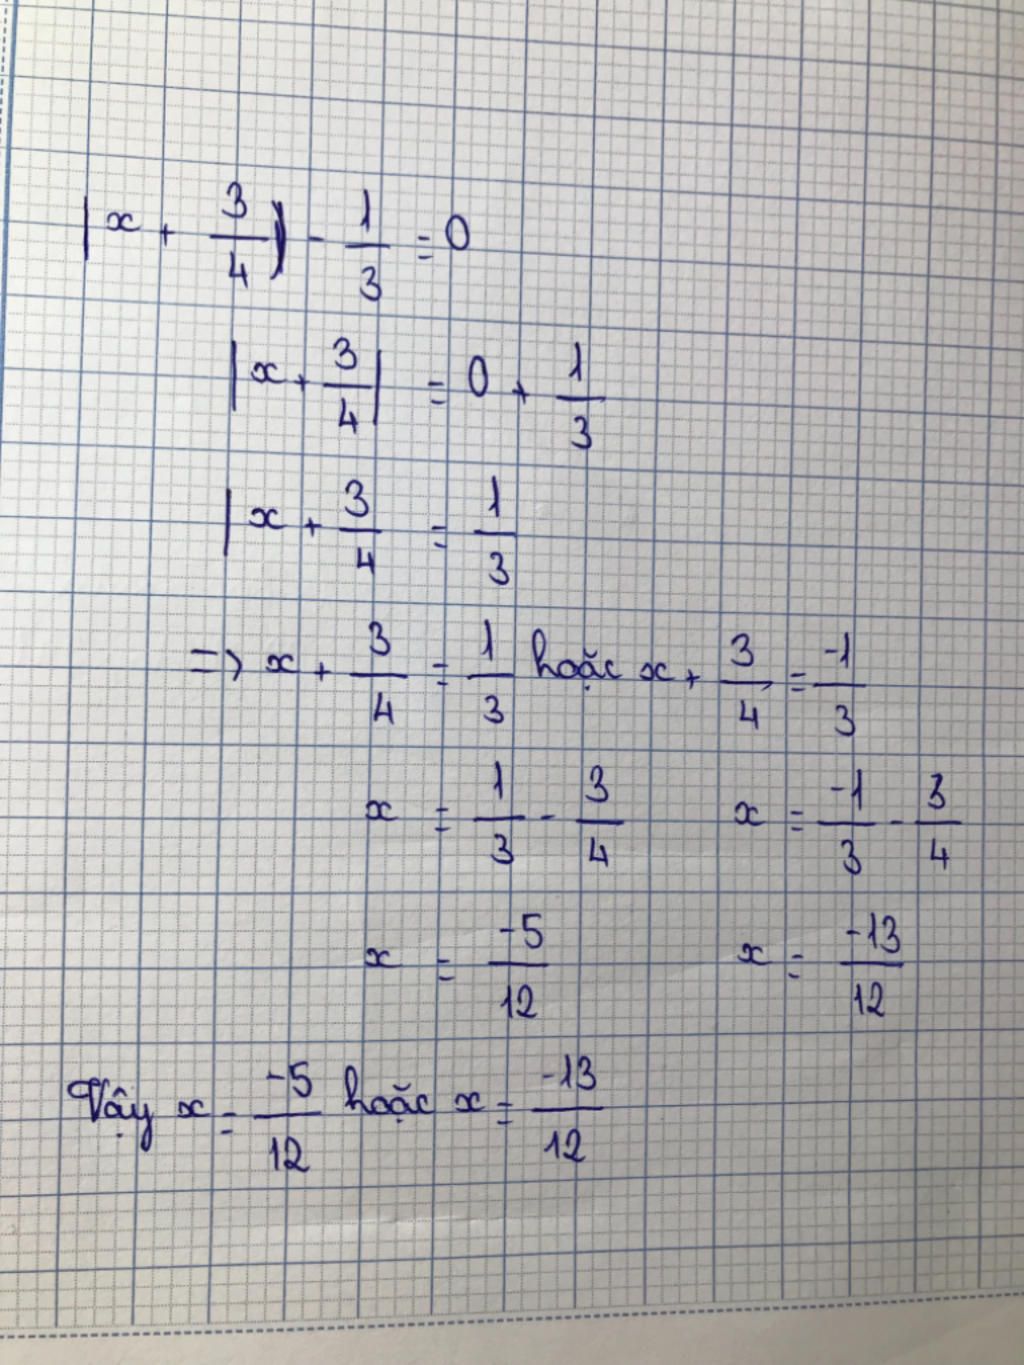 |x + 3/4| - 1/3 = 0
|x + 3/4| = 0 + 1/3
|x + 3/4 = 1/3
=> x + 3/4 = 1/3 hoặc x + 3/4 = -1/3
x = 1/3 - 3/4 x = -1/3 - 3/4
x = -5/12 x = -13/12
Vậy x = -5/12 hoặc x = -13/12